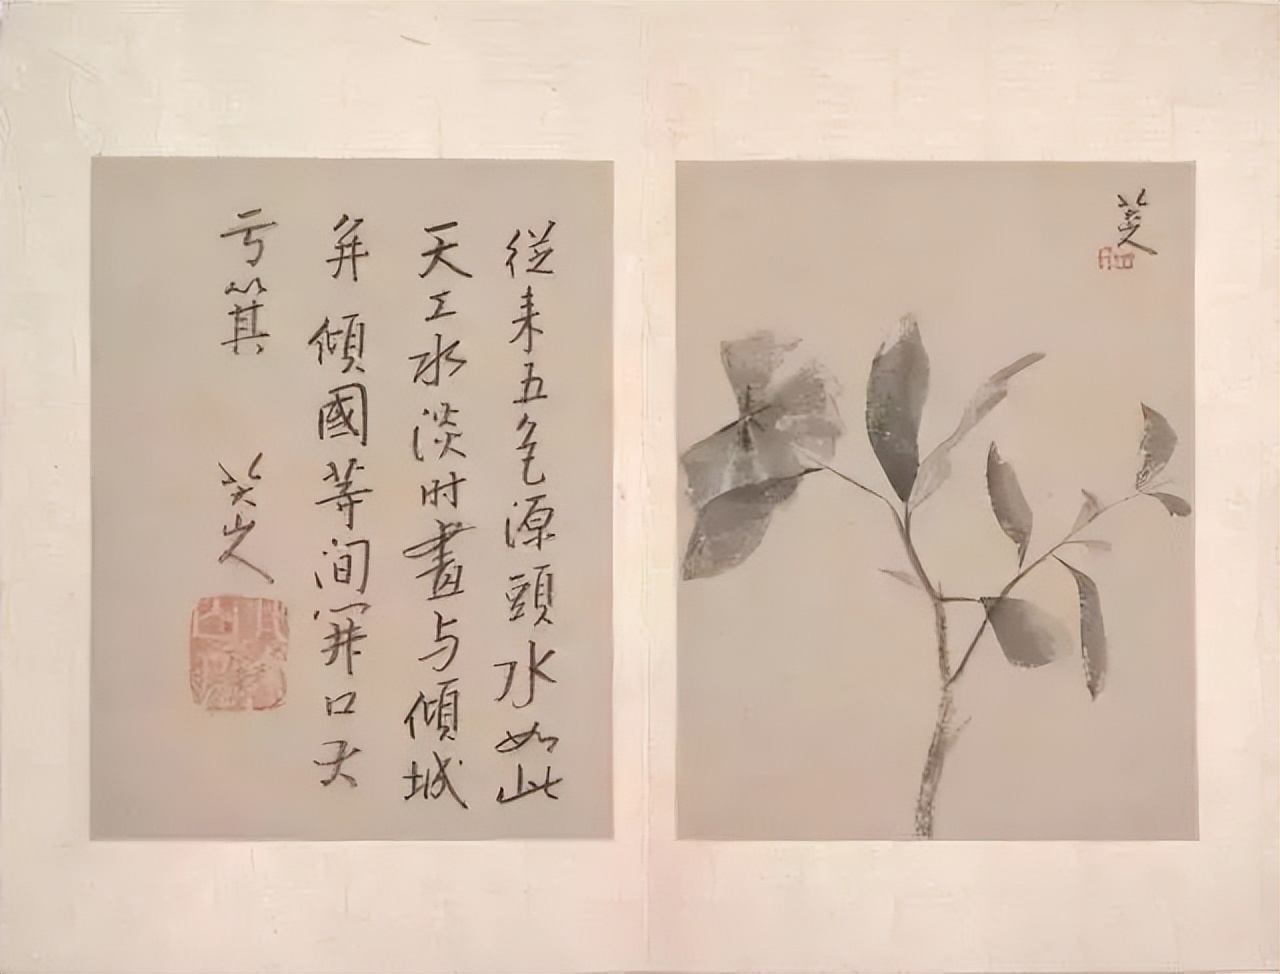 從来五色源頭水如此
天工水淡时畫与傾城
并傾國等間開口大
亐箕
八大山人
八大山人